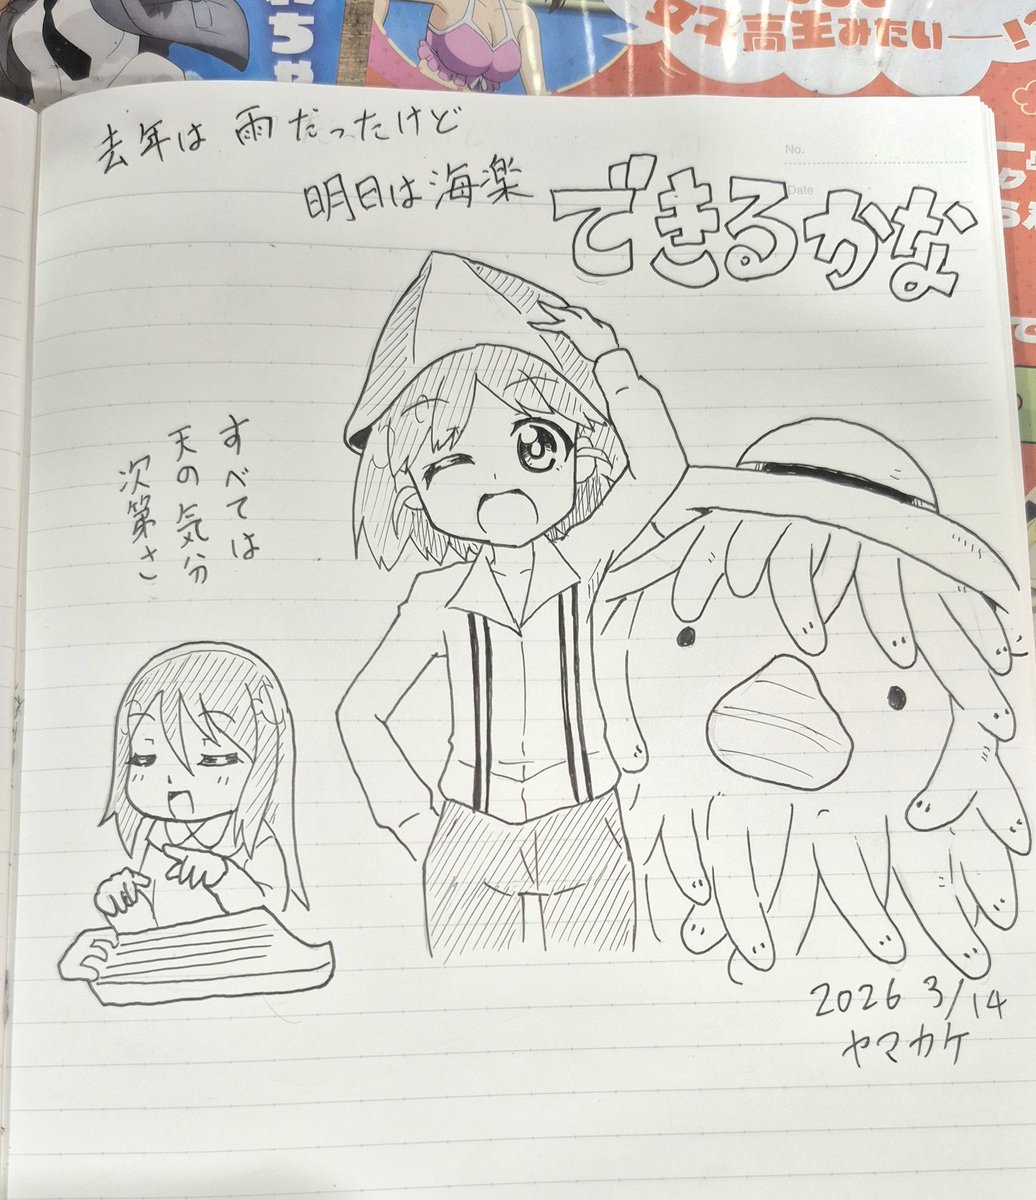 わちゃ
女子高生みたい──!
No.
Date
去年は雨だったけど
明日は海楽
できるかな
すべては
天の気分
次第さ
2026 3/14
ヤマカケ